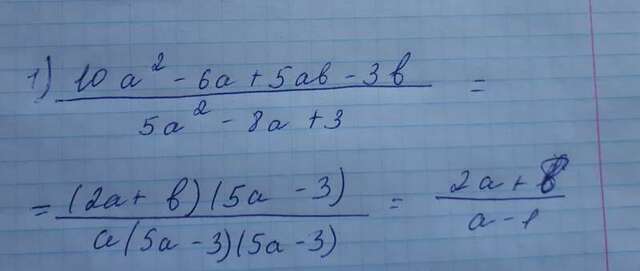 1) (10a² - 6a + 5ab - 3b) / (5a² - 8a + 3) =
= ((2a + b)(5a - 3)) / (a(5a - 3)(5a - 3)) = (2a + b) / (a - 1)